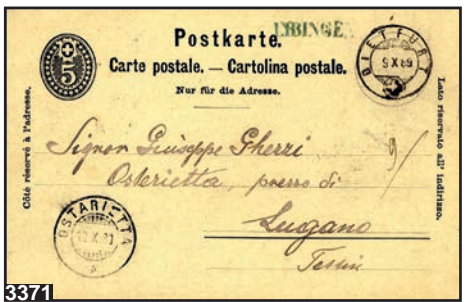 LIBINGEN
Postkarte.
Carte postale. — Cartolina postale.
Nur für die Adresse.
5
DIETFURT
9 X 89
Côté réservé à l'adresse.
Lato riservato all' indirizzo.
Signor Giuseppe Gherri
9/
Osterietta, presso di
Lugano
Tessin
OSTARIETTA
X 89
3371